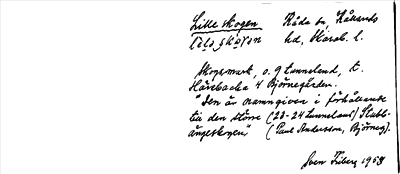 Lilleskogen Råda sn, Kållands
hd, Skarab. l.
Skogsmark, o. 9 tunneland, t.
Häresbacka 4 Björnegården.
"Den är namngiven i förhållande
till den större (23-24 tunneland) Stubb-
ängeskogen" (Paul Andersson, Björneg).
Sven Friberg 1958